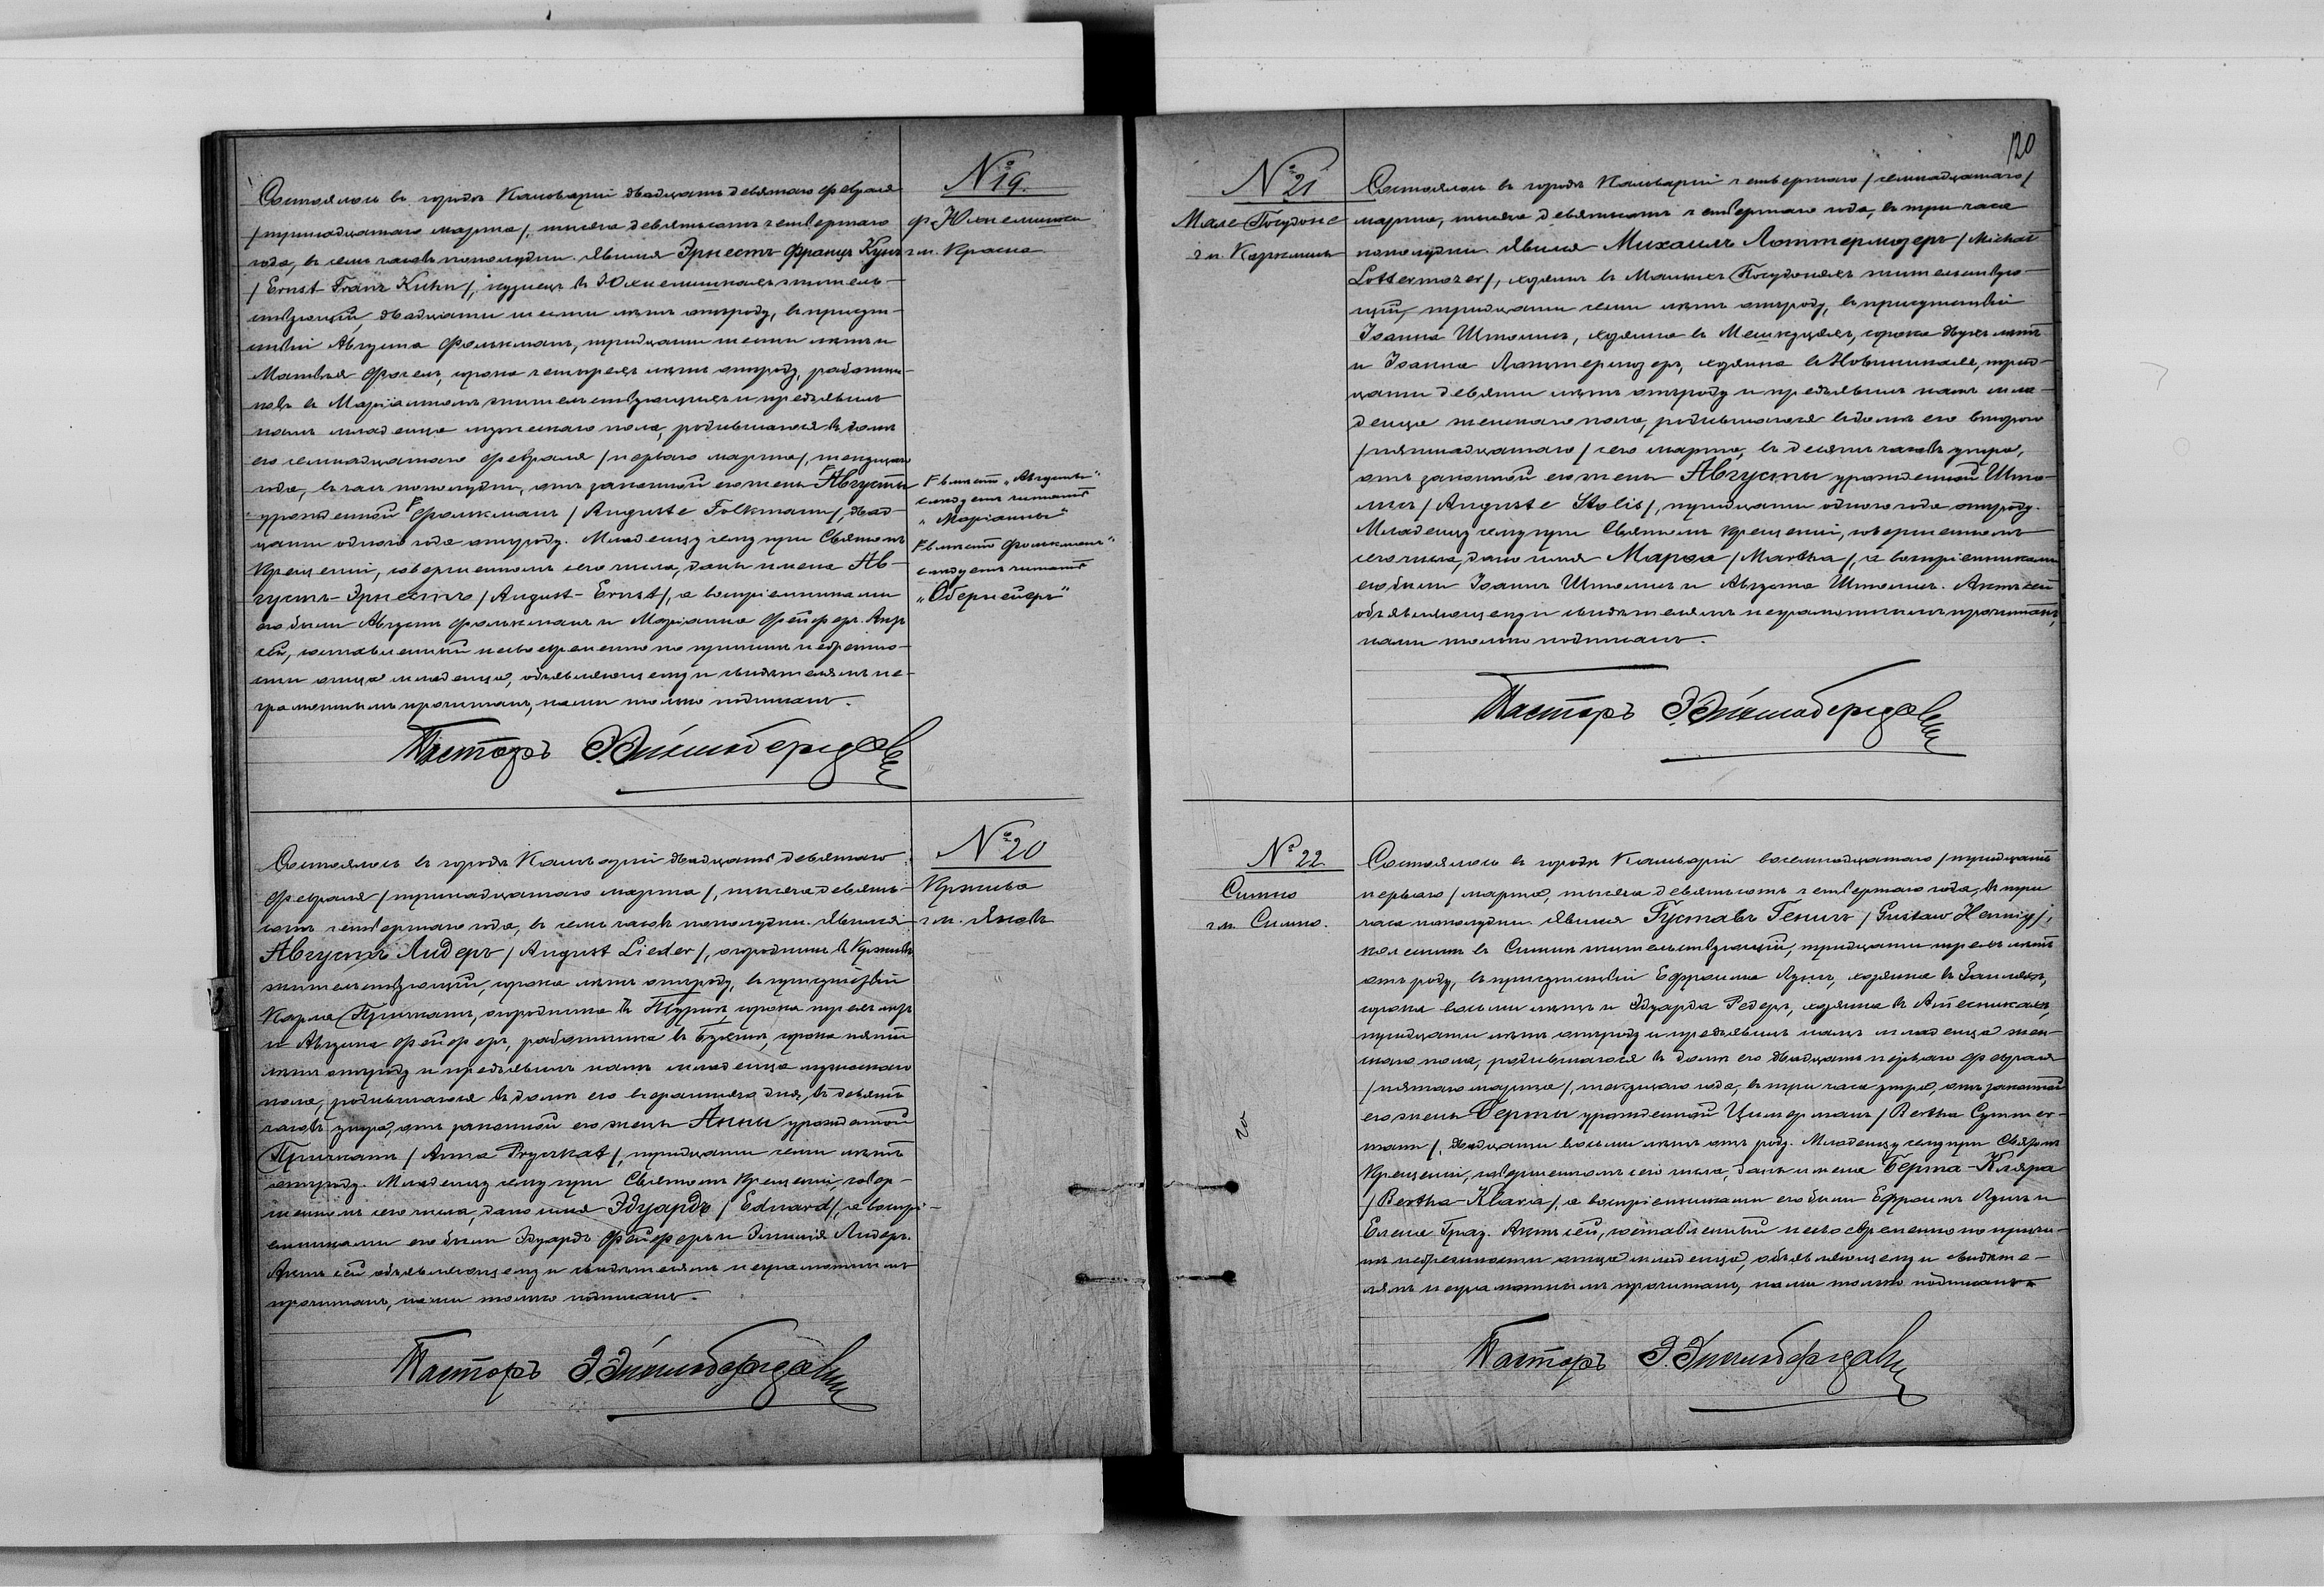 № 19.
ф. Юхнелишки
гм. Красна
Состоялось въ городѣ Кальваріи двадцать девятаго февраля
/тринадцатаго марта/, тысяча девятьсотъ четвертаго
года, въ семь часовъ пополудни. Явился Эрнестъ Францъ Кунъ
/Ernst Franz Kuhn/, кузнецъ въ Юхнелишкахъ житель-
ствующій, двадцати шести лѣтъ отъ роду, въ присут-
ствіи Августа Фолькманъ, тридцати шести лѣтъ и
Матвѣя Фогель, сорока четырехъ лѣтъ отъ роду, работни-
ковъ въ Маріамполѣ жительствующихъ и предъявилъ
намъ младенца мужескаго пола, родившагося въ домѣ
его семнадцатаго февраля /перваго марта/, текущаго
года, въ часъ пополудни, отъ законной его жены Августы
урожденной Фолькманъ /Auguste Folkmann/, двад-
цати одного года отъ роду. Младенцу сему при Святомъ
Крещеніи, совершенномъ сего числа, даны имена Ав-
густъ-Эрнестъ /August-Ernst/, а воспріемниками
его были Августъ Фолькманъ и Маріанна Фейферъ. Актъ
сей, составленный несвоевременно по причинѣ небрежно-
сти отца младенца, объявляющему и свидѣтелямъ не-
грамотнымъ прочитанъ, нами только подписанъ.
вмѣсто „Августы“
слѣдуетъ читать
„Маріанны“
вмѣсто Фолькманъ“
слѣдуетъ читать
„Обернейеръ“
Пасторъ
№ 20
Кржива
гм. Яновъ
Состоялось въ городѣ Кальваріи двадцать девятаго
февраля /тринадцатаго марта/, тысяча девять-
сотъ четвертаго года, въ семь часовъ пополудни. Явился
Августъ Лидеръ /August Lieder/, огородникъ въ Крживѣ
жительствующій, сорока лѣтъ отъ роду, въ присутствіи
Карла Пришкатъ, огородника въ сорока трехъ лѣтъ
и Августа Фейферъ, работника въ сорока пяти
лѣтъ отъ роду и предъявилъ намъ младенца мужескаго
пола, родившагося въ домѣ его вчерашняго дня, въ девять
часовъ утра, отъ законной его жены Анны урожденной
Пришкатъ /Anna Pryszkat/, тридцати семи лѣтъ
отъ роду. Младенцу сему при Святомъ Крещеніи, совер-
шенномъ сего числа, дано имя Эдуардъ /Eduard/, а воспрі-
емниками его были Эдуардъ Фейферъ и Эмилія Лидеръ.
Актъ сей объявляющему и свидѣтелямъ неграмотнымъ
прочитанъ, нами только подписанъ.
Пасторъ
120
№ 21
Мале Погудоне
гм.
Состоялось въ городѣ Кальваріи четвертаго /семнадцатаго/
марта, тысяча девятьсотъ четвертаго года, въ три часа
пополудни. Явился Михаилъ Лоттермозеръ /Michał
Lottermozer/, хозяинъ въ Малыхъ Погудоняхъ жительствую-
щій, тридцати семи лѣтъ отъ роду, въ присутствіи
Іоанна Штолисъ, хозяина въ сорока двухъ лѣтъ
и Іоанна Латтермозеръ, хозяина въ трид-
цати девяти лѣтъ отъ роду и предъявилъ намъ мла-
денца женскаго пола, родившагося въ домѣ его втораго
/пятнадцатаго/ сего марта, въ десять часовъ утра,
отъ законной его жены Августы урожденной Што-
лисъ /Auguste Stolis/, тридцати одного года отъ роду.
Младенцу сему при Святомъ Крещеніи, совершенномъ
сего числа, дано имя Марѳа /Martha/, а воспріемниками
его были Іоаннъ Штолисъ и Августа Штолисъ. Актъ сей
объявляющему и свидѣтелямъ неграмотнымъ прочитанъ,
нами только подписанъ.
Пасторъ
№ 22
Симно
гм. Симно.
Состоялось въ городѣ Кальваріи восемнадцатаго /тридцать
перваго/ марта, тысяча девятьсотъ четвертаго года, въ три
часа пополудни. Явился Густавъ Генигъ /Gustaw Hennig/,
въ Симнѣ жительствующій, тридцати трехъ лѣтъ
отъ роду, въ присутствіи Ефроима хозяина въ
сорока восьми лѣтъ и Эдуарда Редеръ, хозяина въ
тридцати лѣтъ отъ роду и предъявилъ намъ младенца жен-
скаго пола, родившагося въ домѣ его двадцать перваго февраля
/пятаго марта/, текущаго года, въ три часа утра, отъ законной
его жены Берты урожденной Цимерманъ /Bertha Cymmer-
mann/, двадцати восьми лѣтъ отъ роду. Младенцу сему при Святомъ
Крещеніи, совершенномъ сего числа, даны имена Берта-Кляра
/Bertha-Klara/, а воспріемниками его были Ефроимъ и
Елена Актъ сей, составленный несвоевременно по причи-
нѣ небрежности отца младенца, объявляющему и свидѣте-
лямъ неграмотнымъ прочитанъ, нами только подписанъ.
Пасторъ